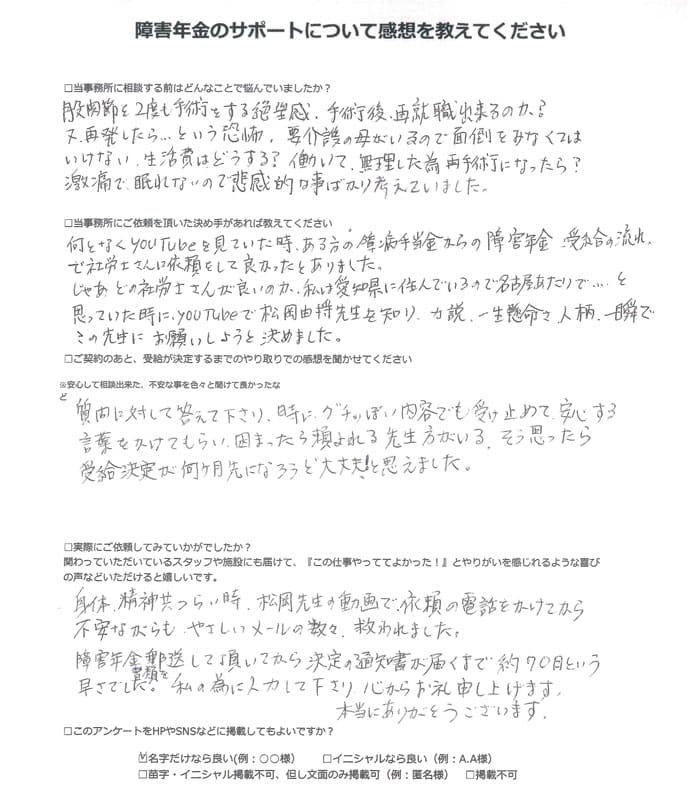 障害年金のサポートについて感想を教えてください
□当事務所に相談する前はどんなことで悩んでいましたか?
股関節を2度も手術をする絶望感、手術後、再就職出来るのか?
又、再発したら…という恐怖、要介護の母がいるので面倒をみなくては
いけない、生活費はどうする?働いて、無理した為再手術になったら?
激痛で、眠れないので悲感的な事ばかり考えていました。
□当事務所にご依頼を頂いた決め手があれば教えてください
何となくYOUTubeを見ていた時、ある方の傷病手当金からの障害年金、受給の流れ、
で社労士さんに依頼をして良かったとありました。
じゃあ、どの社労士さんが良いのか、私は愛知県に住んでいるので名古屋あたりで…、と
思っていた時に、YOUTubeで松岡由将先生を知り、力説、一生懸命さ、人柄、一瞬で
この先生にお願いしようと決めました。
□ご契約のあと、受給が決定するまでのやり取りでの感想を聞かせてください
※安心して相談出来た、不安な事を色々と聞けて良かったな
ど
質問に対して答えて下さり、時に、グチっぽい内容でも受け止めて、安心する
言葉をかけてもらい、困まったら頼よれる先生方がいる、そう思ったら
受給決定が何ケ月先になろうと大丈夫!と思えました。
□実際にご依頼してみていかがでしたか?
関わっていただいているスタッフや施設にも届けて、『この仕事やっててよかった!』とやりがいを感じれるような喜び
の声などいただけると嬉しいです。
身体、精神共つらい時、松岡先生の動画で、依頼の電話をかけてから
不安ながらも、やさしいメールの数々、救われました。
障害年金書類を郵送して頂いてから決定の通知書が届くまで約70日という
早さでした。私の為に入力して下さり心からお礼申し上げます。
本当にありがとうございます。
□このアンケートをHPやSNSなどに掲載してもよいですか?
☑名字だけなら良い(例:○○様) □イニシャルなら良い(例:A.A様)
□苗字・イニシャル掲載不可、但し文面のみ掲載可(例:匿名様) □掲載不可